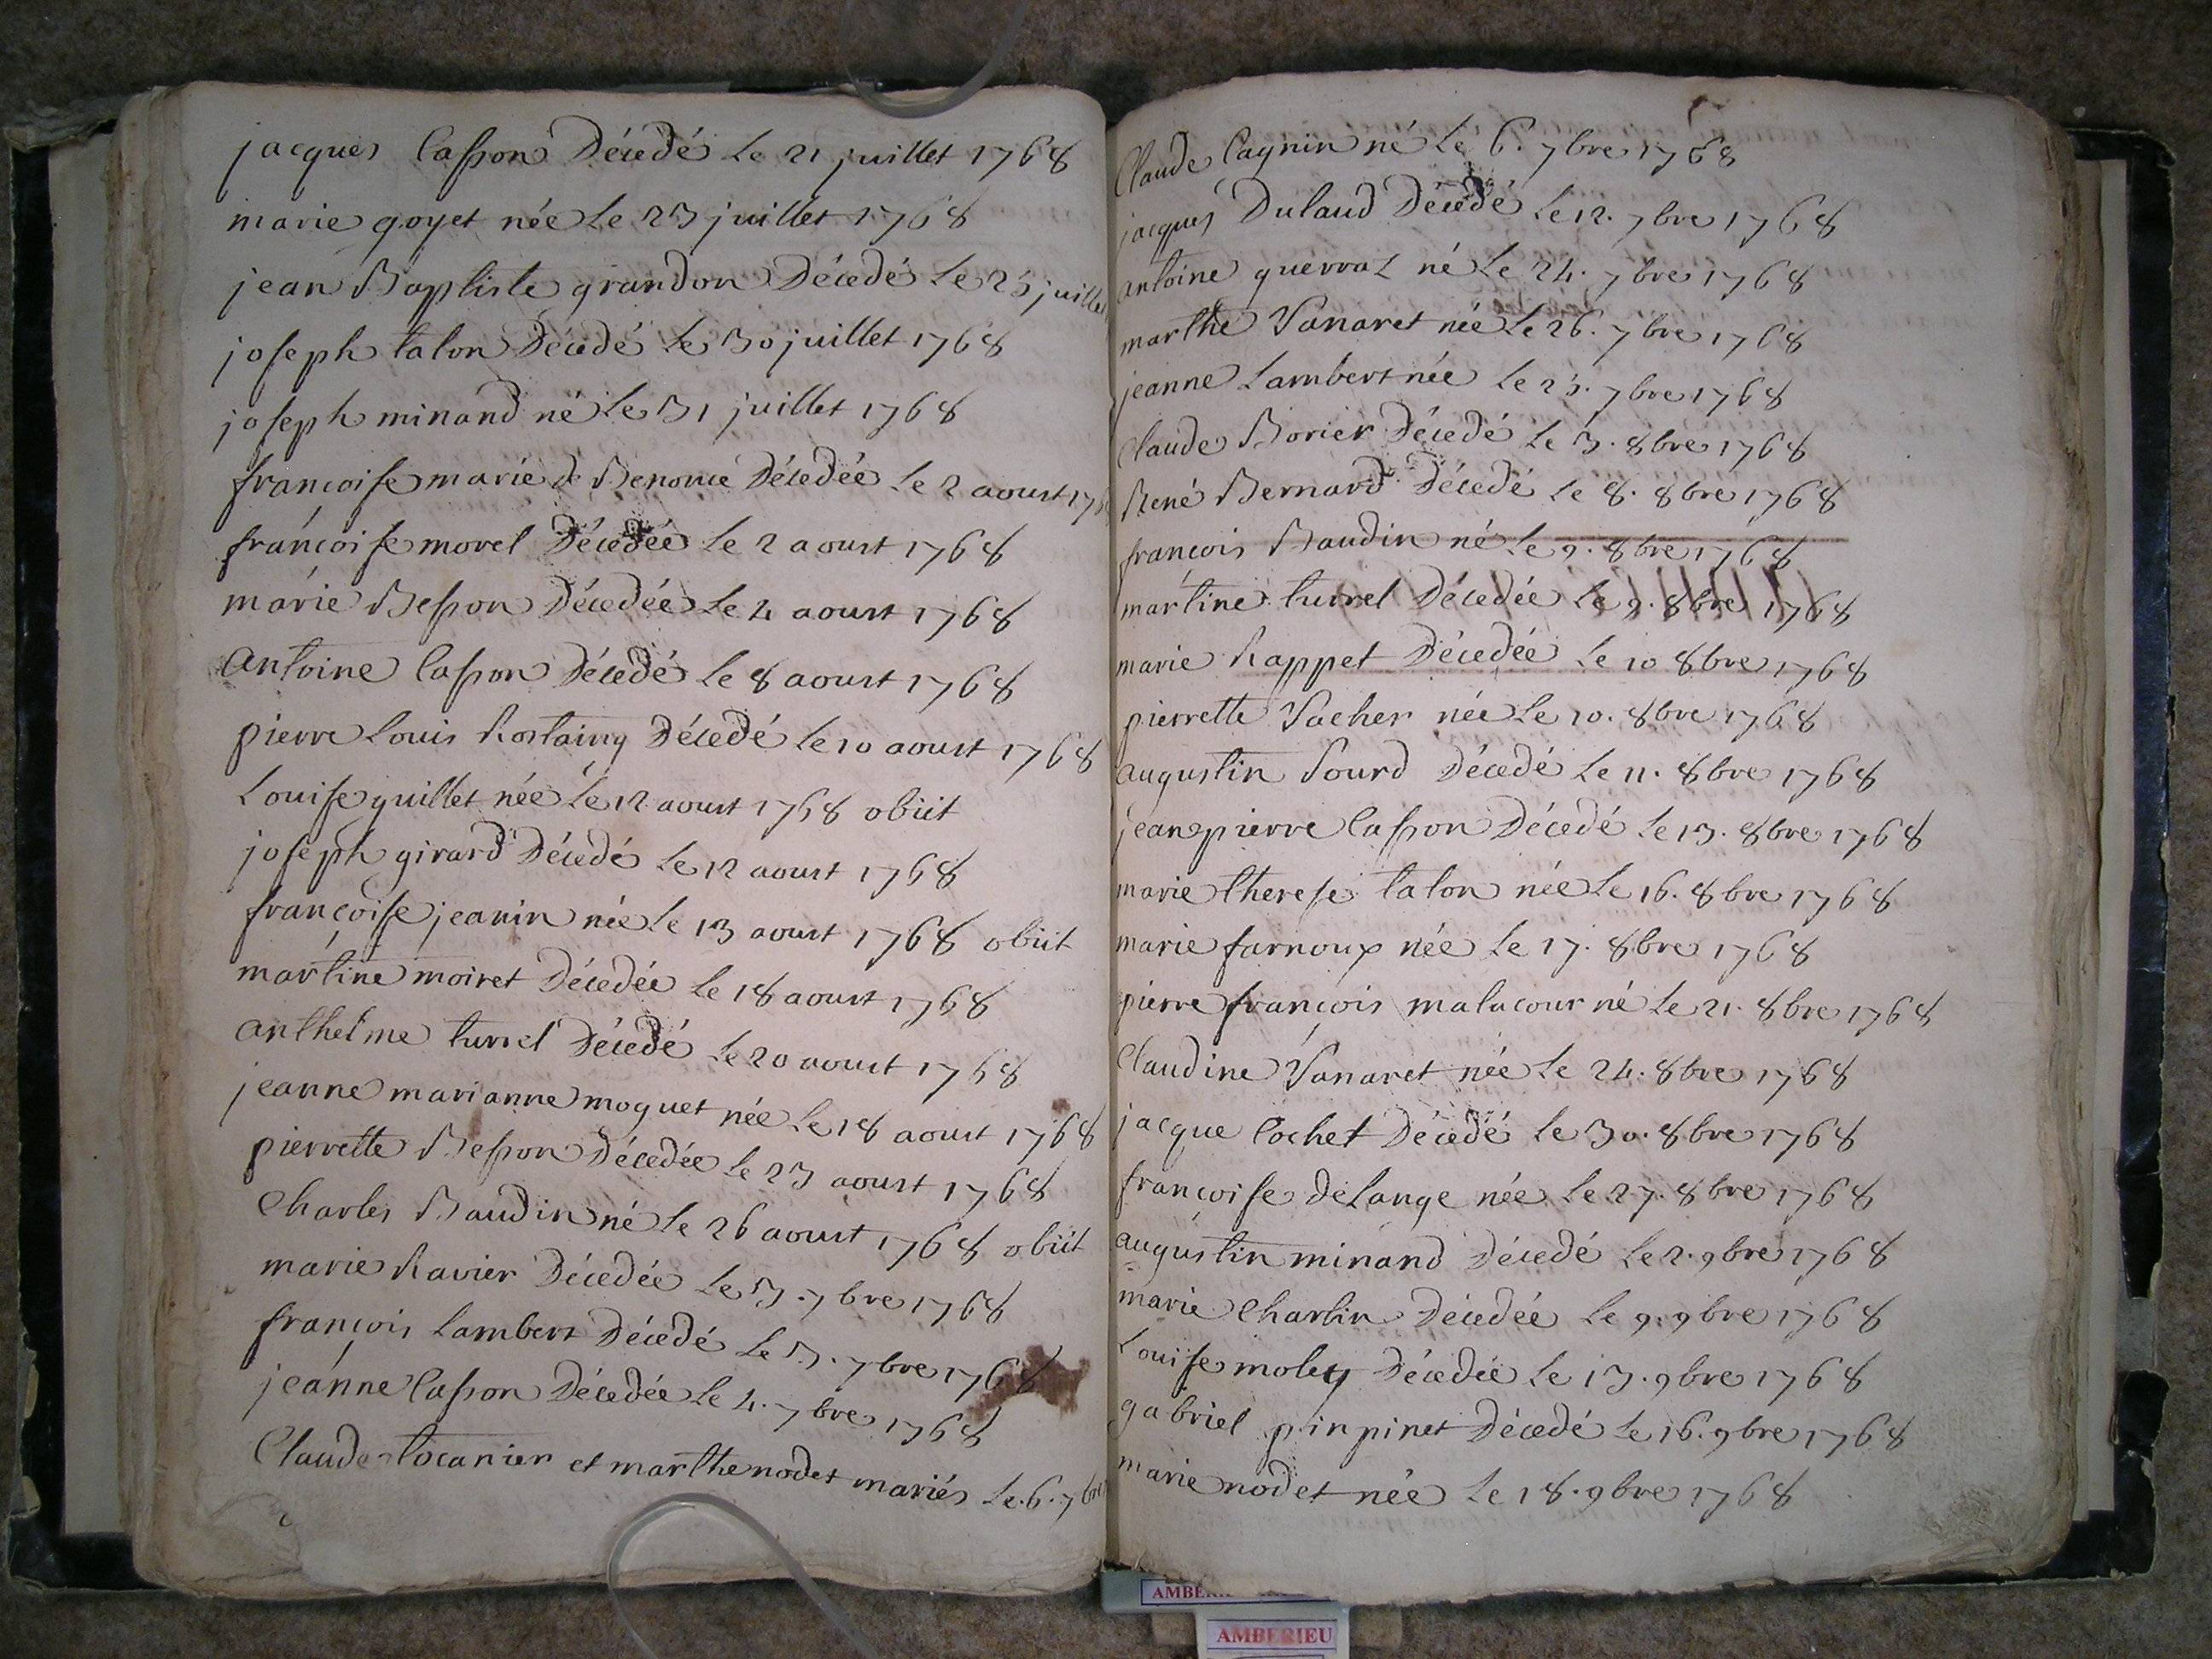 jacques Casson Décédé Le 21 juillet 1768
marie goyet née Le 23 juillet 1768
jean Baptiste grandon Décédé Le 25 juillet
joseph talon Décédé Le 30 juillet 1768
joseph minand né Le 31 juillet 1768
françoise marie de Décédée Le 2 aoust 176
françoise morel Décédée Le 2 aoust 1768
marie Besson Décédée Le 4 aoust 1768
antoine Casson Décédé Le 8 aoust 1768
pierre Louis Rostaing Décédé Le 10 aoust 1768
Louise guillet née Le 12 aoust 1768 obiit
joseph girard Décédé Le 12 aoust 1768
françoise jeanin née Le 13 aoust 1768 obiit
martine moiret Décédée Le 18 aoust 1768
anthelme turrel Décédé Le 20 aoust 1768
jeanne marianne moguet née Le 18 aoust 1768
pierrette Besson Décédée Le 23 aoust 1768
Charles Baudin né Le 26 aoust 1768 obiit
marie Ravier Décédée Le 3. 7bre 1768
françois Lambert Décédé Le 3. 7bre 1768
jeanne Casson Décédée Le 4. 7bre 1768
Claude tocanier et marthe nodet mariés Le. 6. 7bre
Claude Cagnin né Le 6. 7bre 1768
jacques Dulaud Décédé Le 12. 7bre 1768
antoine guerraz né Le 24. 7bre 1768
marthe Vanaret née Le 26. 7bre 1768
jeanne Lambert née Le 25. 7bre 1768
Claude Borier Décédé Le 3. 8bre 1768
René Bernard Décédé Le 8. 8bre 1768
françois Baudin né Le 9. 8bre 1768
martine turrel Décédée Le 9. 8bre 1768
marie Rappet Décédée Le 10 8bre 1768
pierrette Vacher née Le 10. 8bre 1768
augustin Sourd Décédé Le 11. 8bre 1768
jean pierre Casson Décédé Le 13. 8bre 1768
marie therese talon née Le 16. 8bre 1768
marie farnoux née Le 17. 8bre 1768
pierre françois malacour né Le 21. 8bre 1768
Claudine Vanaret née Le 24. 8bre 1768
jacque Cochet Décédé Le 30. 8bre 1768
françoise delange née Le 27. 8bre 1768
augustin minand Décédé Le 2. 9bre 1768
marie Charlin Décédée Le 9. 9bre 1768
Louise moley Décédée Le 13. 9bre 1768
gabriel pinpinet Décédé Le 16. 9bre 1768
marie nodet née Le 18. 9bre 1768
AMBERIEU